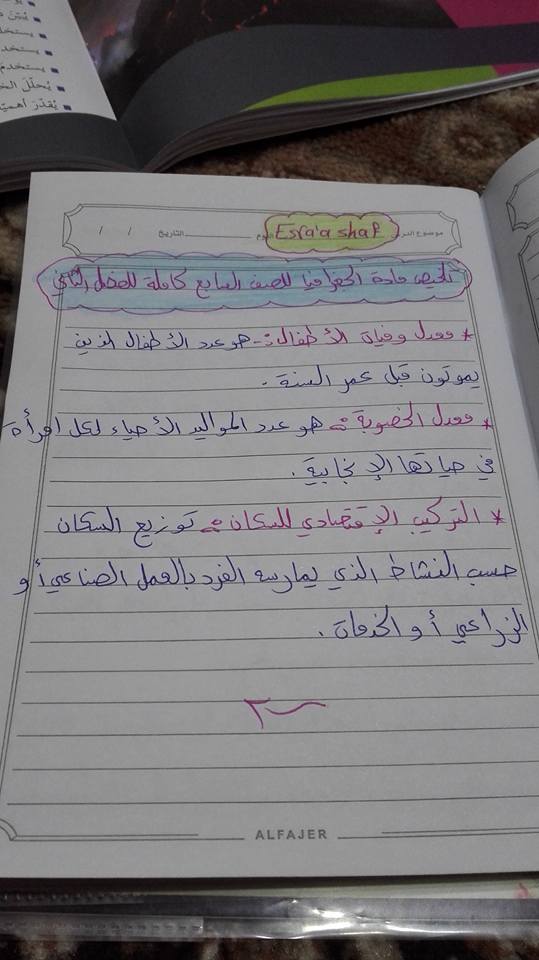 يستخدم
أهمية
يُقدّر
موضوع
Esra'a shaf
اليوم
التاريخ / /
تلخيص مادة الجغرافيا للصف السابع كاملة للفصل الثاني
* معدل وفياة الأطفال :- هو عدد الأطفال الذين
يموتون قبل عمر السنة .
* معدل الخصوبة :- هو عدد المواليد الأحياء لكل امرأة
في حياتها الإنجابية .
* التركيب الإقتصادي للسكان :- توزيع السكان
حسب النشاط الذي يمارسه الفرد بالعمل الصناعي أو
الزراعي أو الخدمات .
ALFAJER